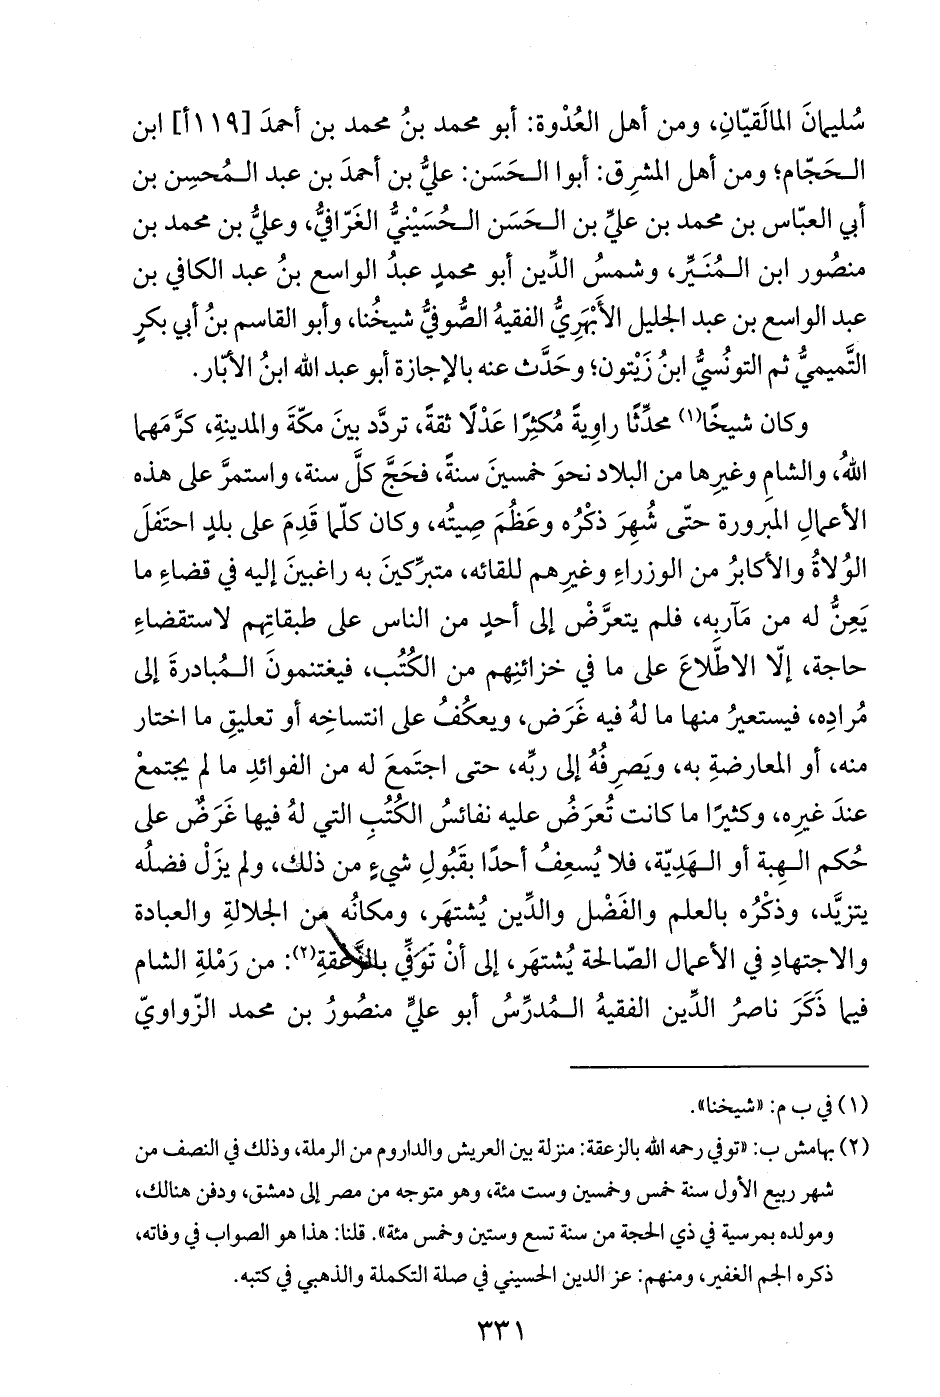 سُليمانَ المالَقيّانِ، ومن أهل العُدْوة: أبو محمد بنُ محمد بن أحمدَ [١١٩أ] ابن
الحَجّام؛ ومن أهل المشرِق: أبوا الحَسَن: عليُّ بن أحمدَ بن عبد المُحسِن بن
أبي العبّاس بن محمد بن عليِّ بن الحَسَن الحُسَيْنيُّ الغَرّافيُّ، وعليُّ بن محمد بن
منصُور ابن المُنَيِّر، وشمسُ الدِّين أبو محمدٍ عبدُ الواسع بنُ عبد الكافي بن
عبد الواسع بن عبد الجليل الأَبْهَريُّ الفقيهُ الصُّوفيُّ شيخُنا، وأبو القاسم بنُ أبي بكرٍ
التَّميميُّ ثم التونُسيُّ ابنُ زَيْتون؛ وحَدَّث عنه بالإجازة أبو عبد الله ابنُ الأبّار.
وكان شيخًا(١) محدِّثًا راوِيةً مُكثِرًا عَدْلًا ثقةً، تردَّد بينَ مكّةَ والمدينةِ، كرَّمَهما
اللهُ، والشامِ وغيرِها من البلاد نحوَ خمسينَ سنةً، فحَجَّ كلَّ سنة، واستمرَّ على هذه
الأعمالِ المبرورة حتّى شُهِرَ ذكْرُه وعَظُمَ صِيتُه، وكان كلّما قَدِمَ على بلدٍ احتَفلَ
الوُلاةُ والأكابرُ من الوزراءِ وغيرِهم للقائه، متبرِّكينَ به راغبينَ إليه في قضاءِ ما
يَعِنُّ له من مآربِه، فلم يتعرَّضْ إلى أحدٍ من الناس على طبقاتِهم لاستقضاءِ
حاجة، إلّا الاطّلاعَ على ما في خزائنِهم من الكُتُب، فيغتنمونَ المُبادرةَ إلى
مُرادِه، فيستعيرُ منها ما لهُ فيه غَرَض، ويعكُفُ على انتساخِه أو تعليقِ ما اختار
منه، أو المعارضةِ به، ويَصرِفُهُ إلى ربِّه، حتى اجتَمعَ له من الفوائدِ ما لم يجتمعْ
عندَ غيرِه، وكثيرًا ما كانت تُعرَضُ عليه نفائسُ الكُتُبِ التي لهُ فيها غَرَضٌ على
حُكم الهِبة أو الهَديّة، فلا يُسعِفُ أحدًا بقَبُولِ شيءٍ من ذلك، ولم يزَلْ فضلُه
يتزيَّد، وذكْرُه بالعلم والفَضْل والدِّين يُشتهَر، ومكانُه من الجلالةِ والعبادة
والاجتهادِ في الأعمال الصّالحة يُشتهَر، إلى أنْ تُوَفِّي بالزَّعْقةِ(٢): من رَمْلةِ الشام
فيما ذَكَرَ ناصرُ الدِّين الفقيهُ المُدرِّسُ أبو عليٍّ منصُورُ بن محمد الزّواويّ
(١) في ب م: «شيخنا».
(٢) بهامش ب: «توفي رحمه الله بالزعقة: منزلة بين العريش والداروم من الرملة، وذلك في النصف من
شهر ربيع الأول سنة خمس وخمسين وست مئة، وهو متوجه من مصر إلى دمشق، ودفن هنالك،
ومولده بمرسية في ذي الحجة من سنة تسع وستين وخمس مئة». قلنا: هذا هو الصواب في وفاته،
ذكره الجم الغفير، ومنهم: عز الدين الحسيني في صلة التكملة والذهبي في كتبه.
٣٣١